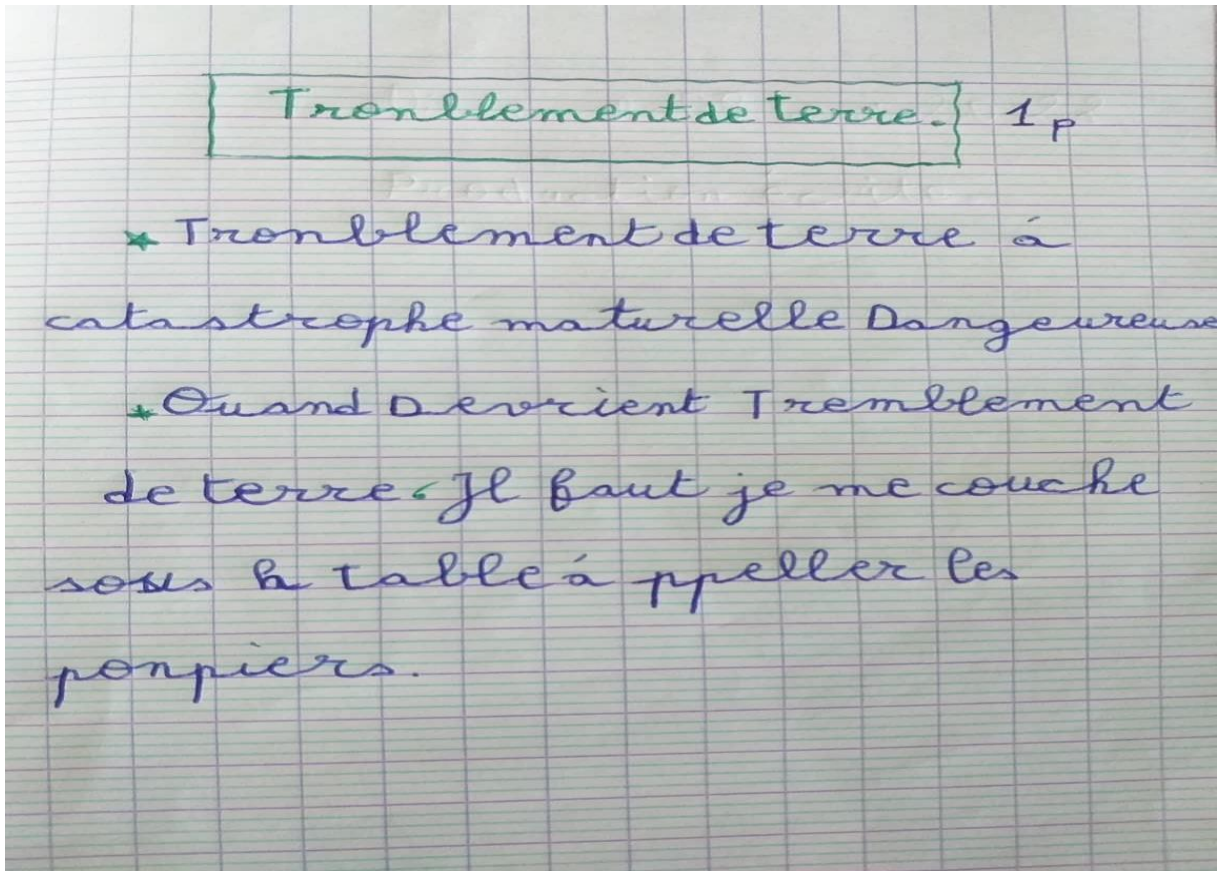 Tronblement de terre. 1p
* Tronblement de terre á
catastrophe maturelle Dangeureuse
* Quand Devrient Tremblement
de terre. Il faut je me couche
sous la table á ppeller les
ponpiers.